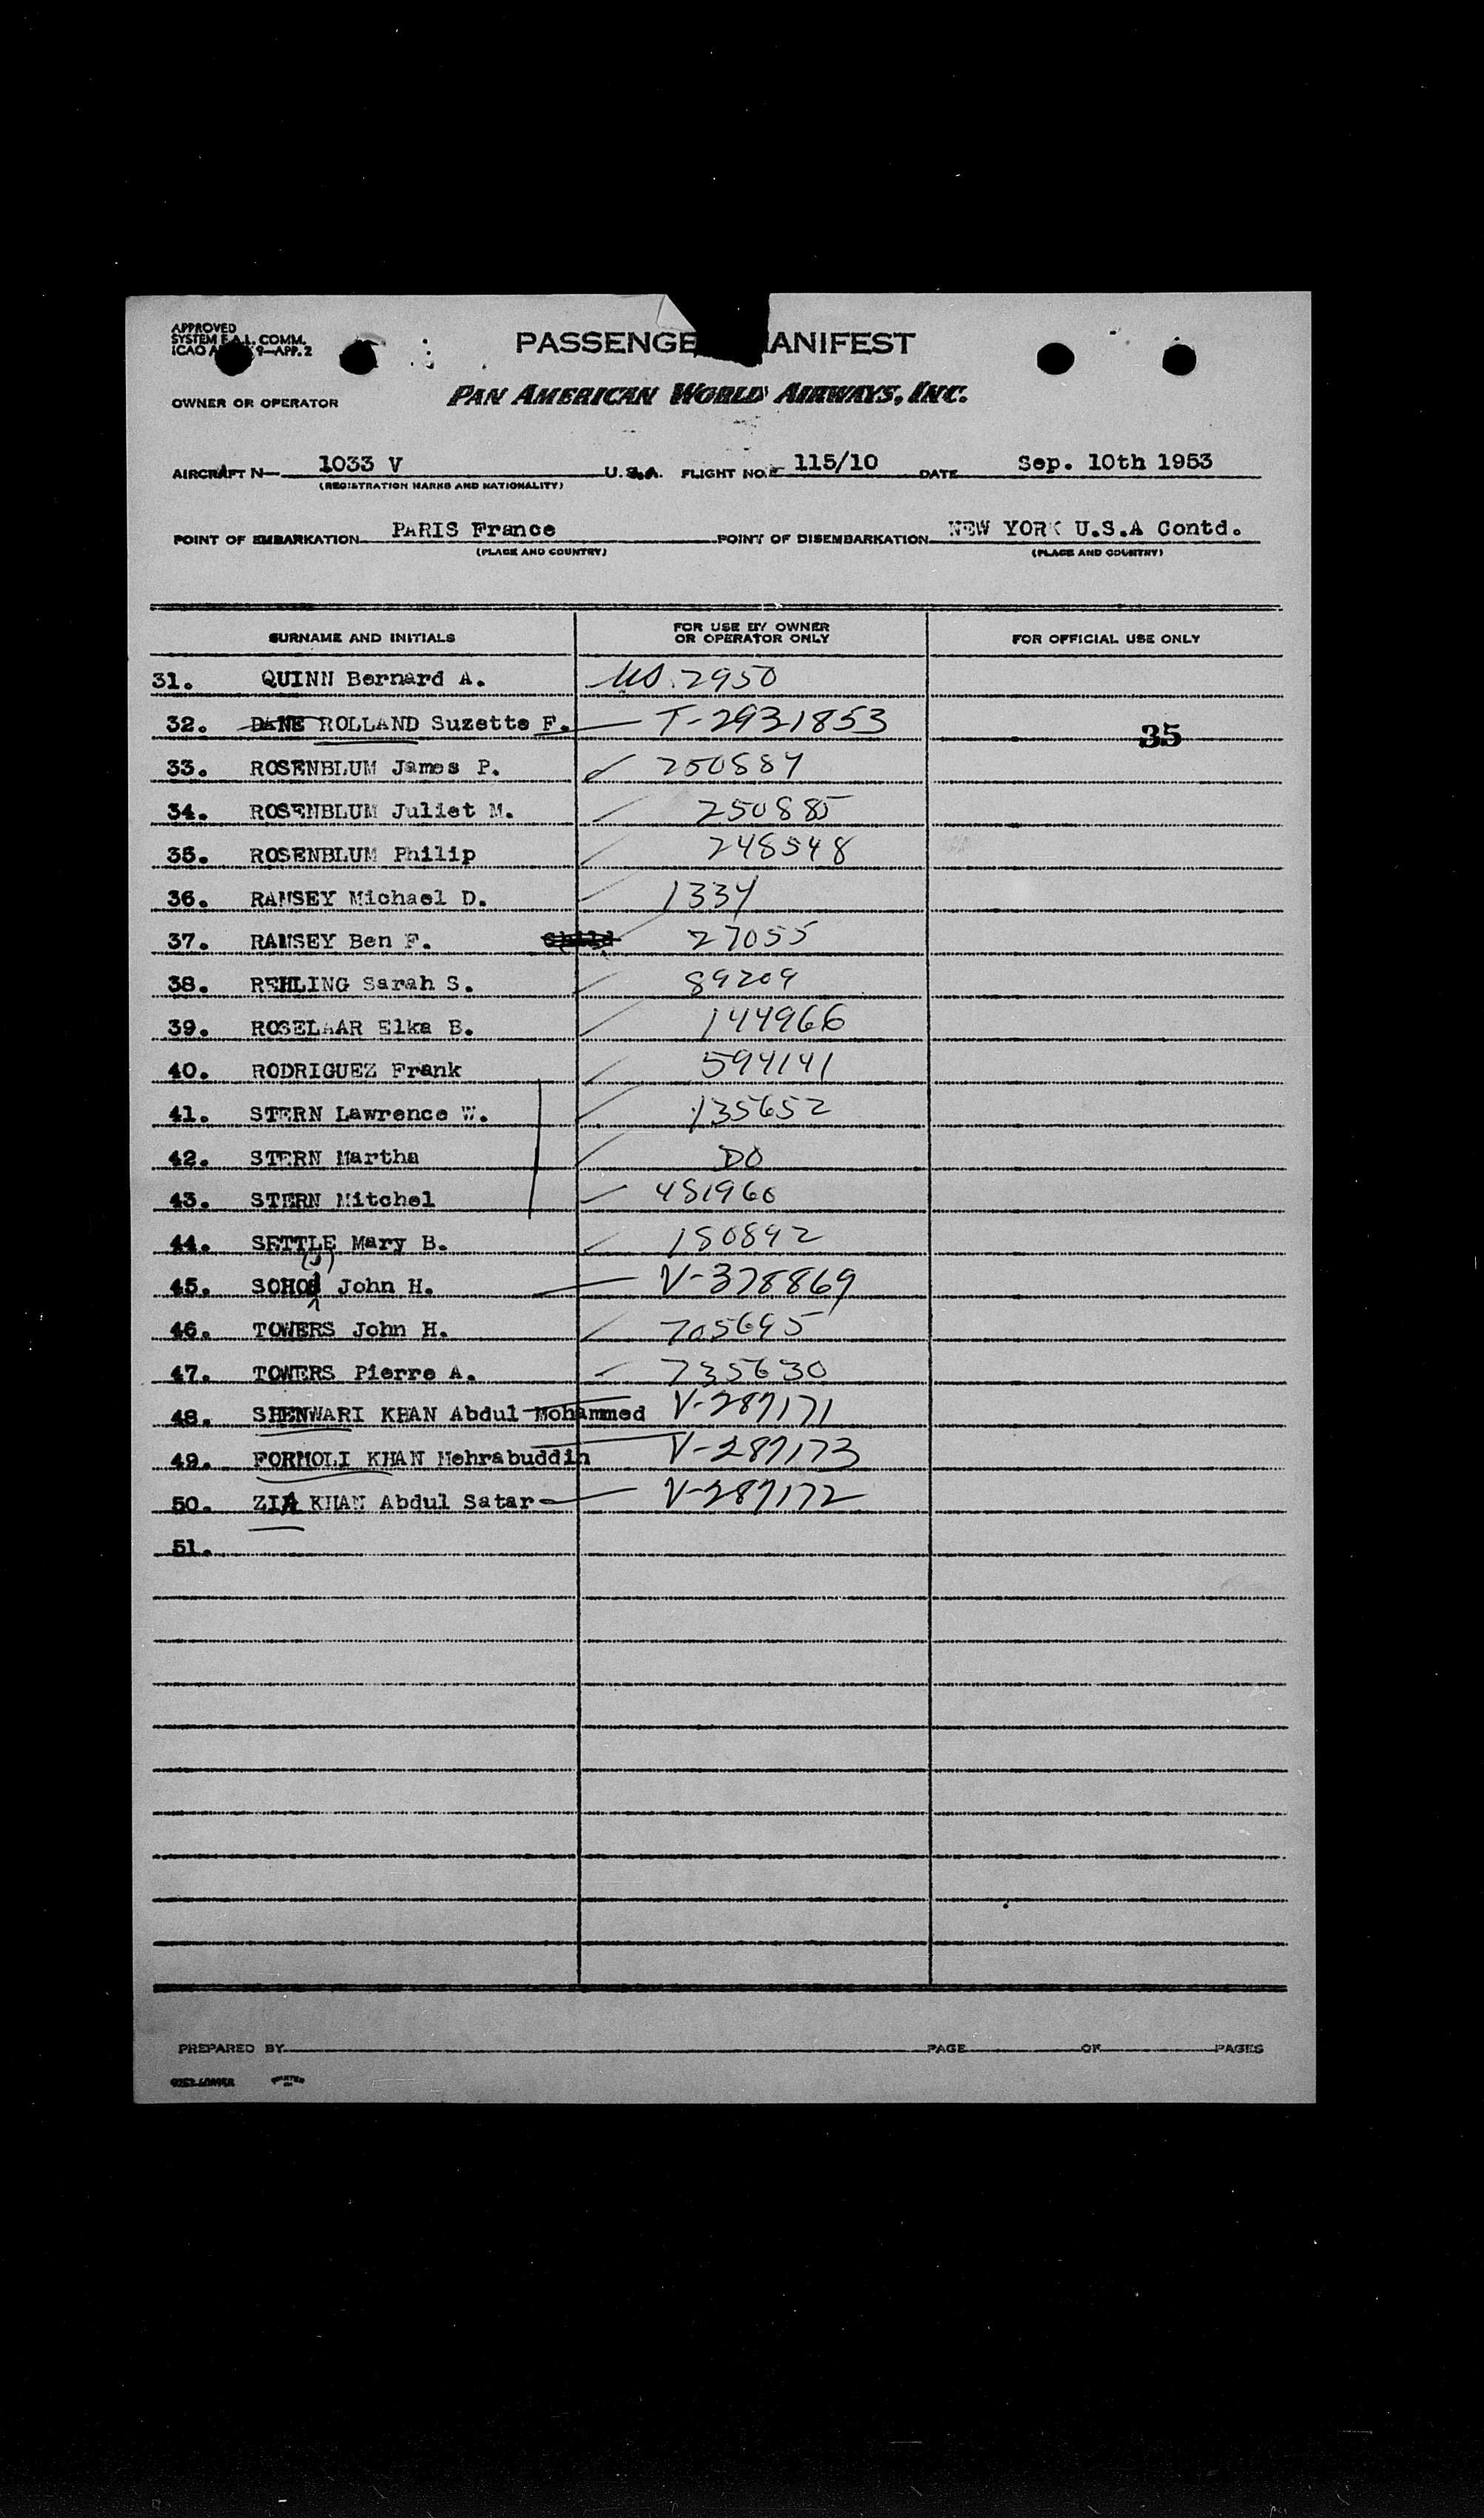 APPROVED
SYSTEM F.A.L. COMM.
ICAO 9—APP. 2
PASSENGE ANIFEST
OWNER OR OPERATOR
PAN AMERICAN WORLD AIRWAYS, INC.
AIRCRAFT N— 1033 V U.S.A. FLIGHT NO. 115/10 DATE Sep. 10th 1953
(REGISTRATION MARKS AND NATIONALITY)
POINT OF EMBARKATION PARIS France POINT OF DISEMBARKATION NEW YORK U.S.A Contd.
(PLACE AND COUNTRY) (PLACE AND COUNTRY)
SURNAME AND INITIALS FOR USE BY OWNER OR OPERATOR ONLY FOR OFFICIAL USE ONLY
31. QUINN Bernard A. US. 2950
32. DANE ROLLAND Suzette F. T-2931853
35
33. ROSENBLUM James P. 250884
34. ROSENBLUM Juliet M. 250885
35. ROSENBLUM Philip 248548
36. RAMSEY Michael D. 1334
37. RAMSEY Ben F. Child 27055
38. REHLING Sarah S. 89209
39. ROSELAAR Elka B. 144966
40. RODRIGUEZ Frank 594141
41. STERN Lawrence W. 135652
42. STERN Martha DO
43. STERN Mitchel 481960
44. SETTLE Mary B. 180842
45. John H. V-378869
46. TOWERS John H. 705695
47. TOWERS Pierre A. 735630
48. SHENWARI KHAN Abdul Mohammed V-287171
49. FORMOLI KHAN Mehrabuddin V-287173
50. ZIA KHAN Abdul Satar V-287172
51.
PREPARED BY PAGE OF PAGES